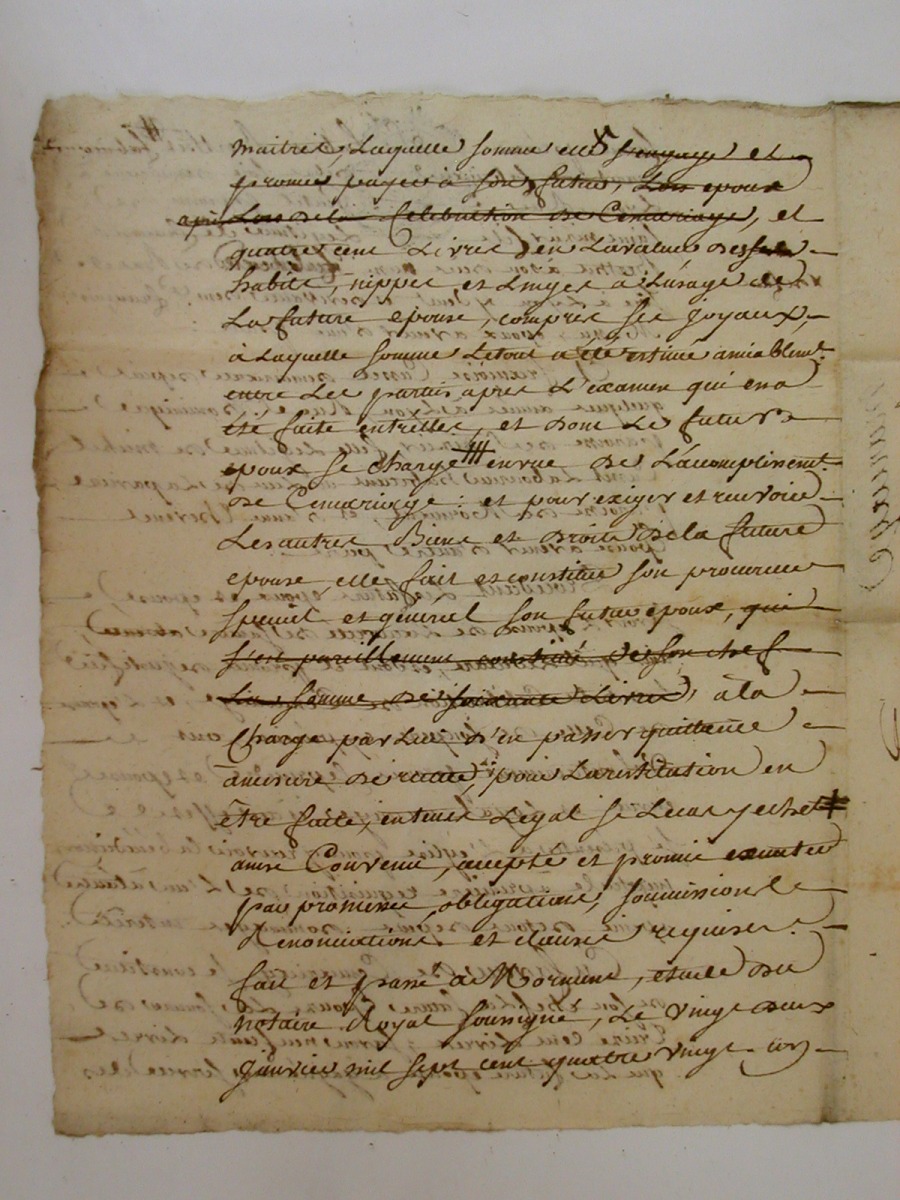 maitres, Laquelle somme elle s'engage et
promet payer à son futur, Lors epoux
après Lors de la Celebration de Ce mariage, et
quatre cent Livres en La valeur de ses
habits, nippes et Linges à L'usage de
La future epouse, compris ses joyaux,
à Laquelle somme Le tout a été estimé amiablemt.
entre Les parties après L'examen qui en a
été faite entr'elles, et dont Le futur
epoux se charge en vue de L'acomplissemt.
de Ce mariage : et pour exiger et recevoir
Les autres Biens et droits de la future
epouse, elle fait et constitue son procureur
special et général son futur epoux, qui
s'est pareillement constitué de son chef
La somme de soixante Livres, à la
Charge par Lui d'en passer quittance
à mesure de recette, pour La restitution en
être faite, en tems Legal si Le cas y echet
ainsi Convenu, accepté et promis executer
par promesses, obligations, soumissions
Renonciations et clauses requises.
fait et passé à Mornant, étude du
notaire Royal soussigné, Le vingt deux
janvier mil sept cent quatre vingt un